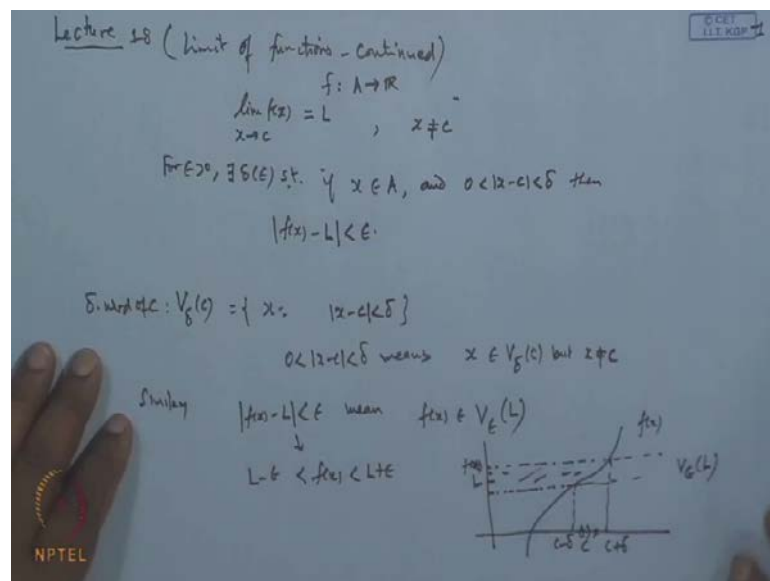 Lecture 18 (Limit of functions - continued)
© CET
I.I.T. KGP
f: A→ℝ
lim f(x) = L , x ≠ c
x→c
For ε>0, ∃ δ(ε) s.t. if x ∈ A, and 0<|x-c|<δ then
|f(x)-L|<ε.
δ-nbd of c: V_δ(c) = { x: |x-c|<δ }
0<|x-c|<δ means x ∈ V_δ(c) but x≠c
Similarly |f(x)-L|<ε mean f(x) ∈ V_ε(L)
↓
L-ε < f(x) < L+ε
f(x)
V_ε(L)
L
c-δ c c+δ
NPTEL